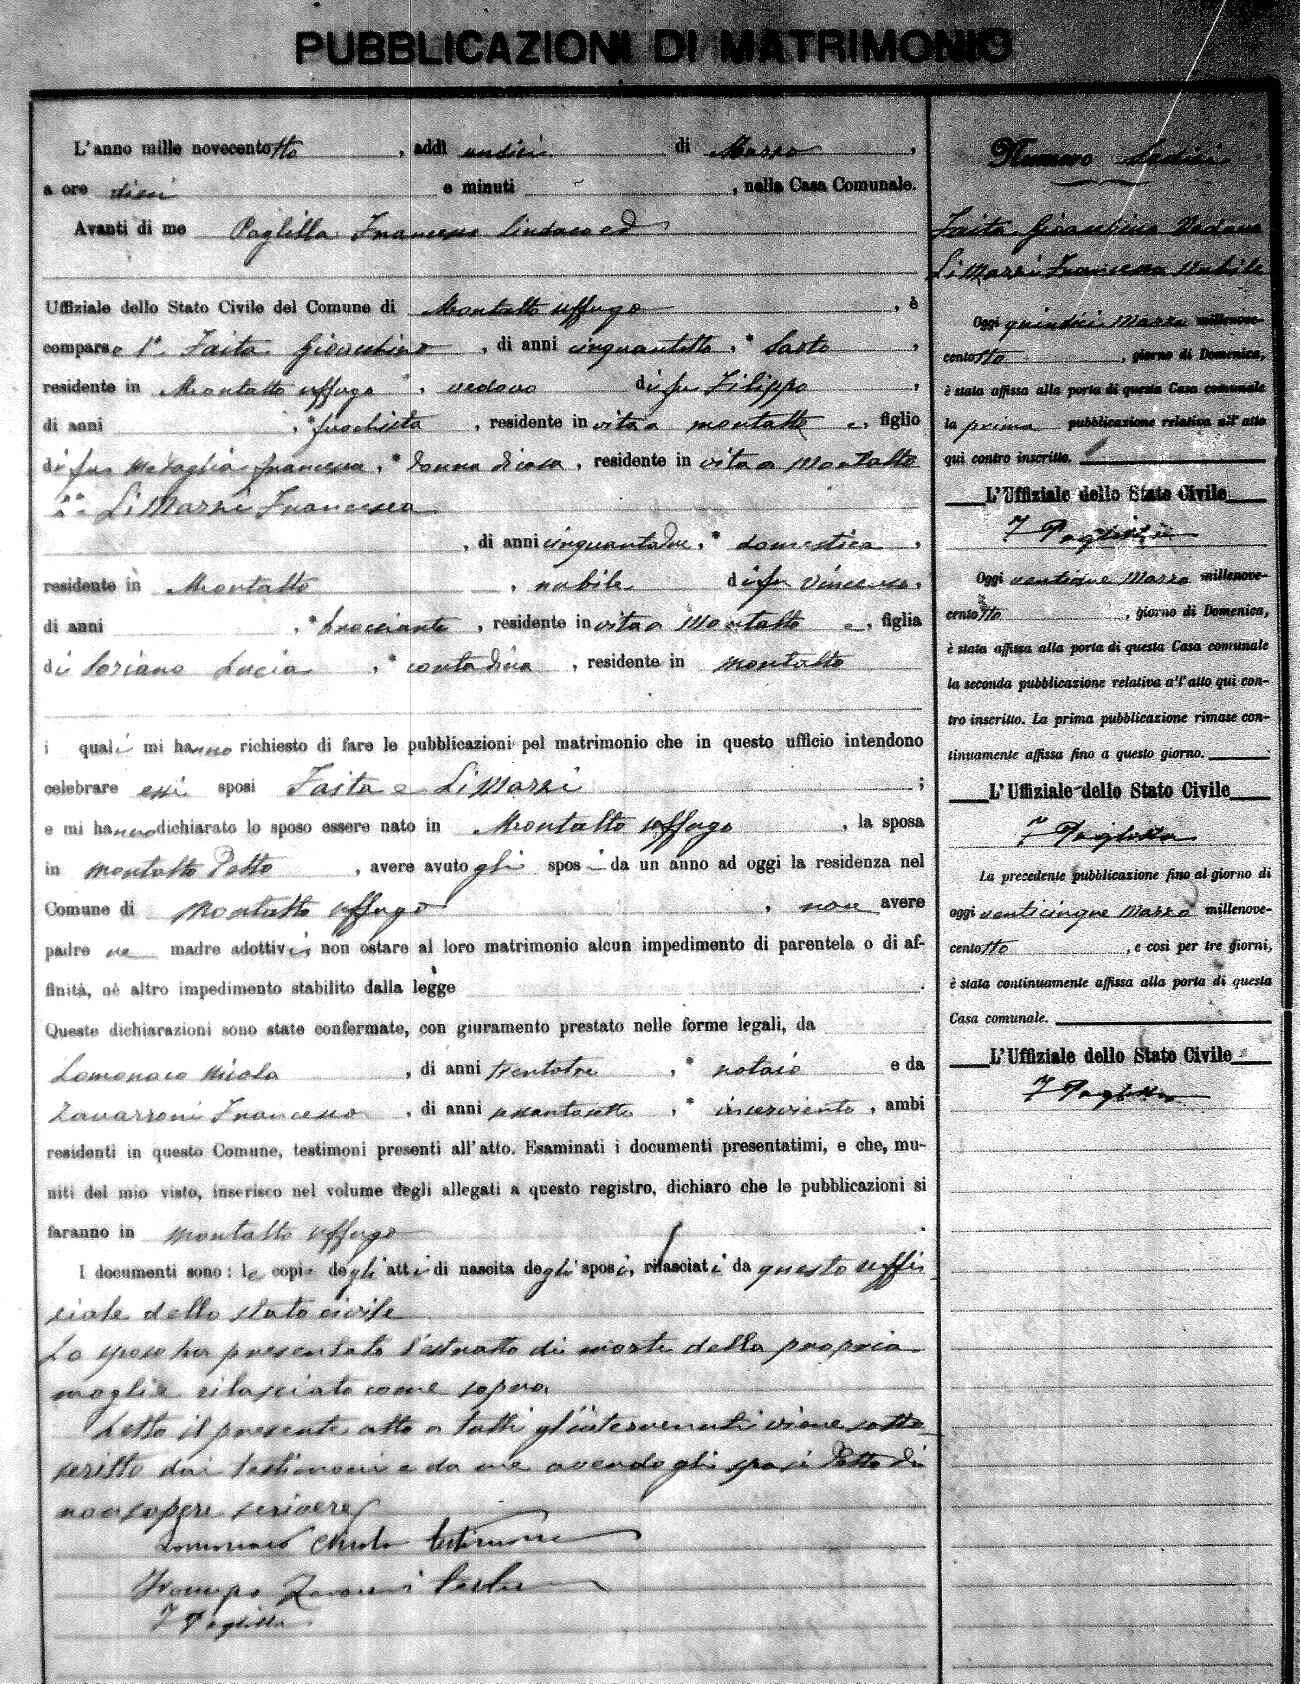 PUBBLICAZIONI DI MATRIMONIO
L'anno mille novecentotto, addì undici di Marzo,
a ore dieci e minuti —, nella Casa Comunale.
Avanti di me Paglilla Francesco Sindaco ed
Uffiziale dello Stato Civile del Comune di Montalto Uffugo, è
comparse 1° Faita Gioachino, di anni cinquantotto, * Sarto,
residente in Montalto Uffugo, vedovo di fu Filippo,
di anni , * fuochista, residente in vita a Montalto e, figlio
di fu Medaglia Francesca, * donna di casa, residente in vita a Montalto
2° Li Marzi Francesca
, di anni cinquantadue, * domestica,
residente in Montalto, nubile di fu Vincenzo,
di anni , * bracciante, residente in vita a Montalto e, figlia
di Soriano Lucia, * contadina, residente in Montalto
i quali mi hanno richiesto di fare le pubblicazioni pel matrimonio che in questo ufficio intendono
celebrare essi sposi Faita e Li Marzi ;
e mi hanno dichiarato lo sposo essere nato in Montalto Uffugo, la sposa
in Montalto Detto, avere avuto gli sposi da un anno ad oggi la residenza nel
Comune di Montalto Uffugo, non avere
padre ne madre adottivi, non ostare al loro matrimonio alcun impedimento di parentela o di af-
finità, nè altro impedimento stabilito dalla legge .
Queste dichiarazioni sono state confermate, con giuramento prestato nelle forme legali, da
Lomonaco Nicola, di anni trentotre, * notaio e da
Zavarroni Francesco, di anni sessantasette, * inserviente, ambi
residenti in questo Comune, testimoni presenti all'atto. Esaminati i documenti presentatimi, e che, mu-
niti del mio visto, inserisco nel volume degli allegati a questo registro, dichiaro che le pubblicazioni si
faranno in Montalto Uffugo .
I documenti sono: le copie degli atti di nascita degli sposi, rilasciati da questo uffi
ziale dello stato civile
Lo sposo ha presentato l'estratto di morte della propria
moglie rilasciato come sopra
Letto il presente atto a tutti gl'intervenuti viene sotto
scritto dai testimoni e da me avendo gli sposi Detto di
non sapere scrivere
Lomonaco Nicola testimone
Zavarroni
F Paglilla
Numero Sedici
Faita Gioachino Vedovo
Li Marzi Francesca Nubile
Oggi quindici Marzo millenove-
centotto, giorno di Domenica,
è stata affissa alla porta di questa Casa comunale
la prima pubblicazione relativa all'atto
qui contro inscritto.
L'Uffiziale dello Stato Civile
F Paglilla
Oggi ventidue Marzo millenove-
centotto, giorno di Domenica,
è stata affissa alla porta di questa Casa comunale
la seconda pubblicazione relativa all'atto qui con-
tro inscritto. La prima pubblicazione rimase con-
tinuamente affissa fino a questo giorno.
L'Uffiziale dello Stato Civile
F Paglilla
La precedente pubblicazione fino al giorno di
oggi venticinque Marzo millenove-
centotto, e così per tre giorni,
è stata continuamente affissa alla porta di questa
Casa comunale.
L'Uffiziale dello Stato Civile
F Paglilla